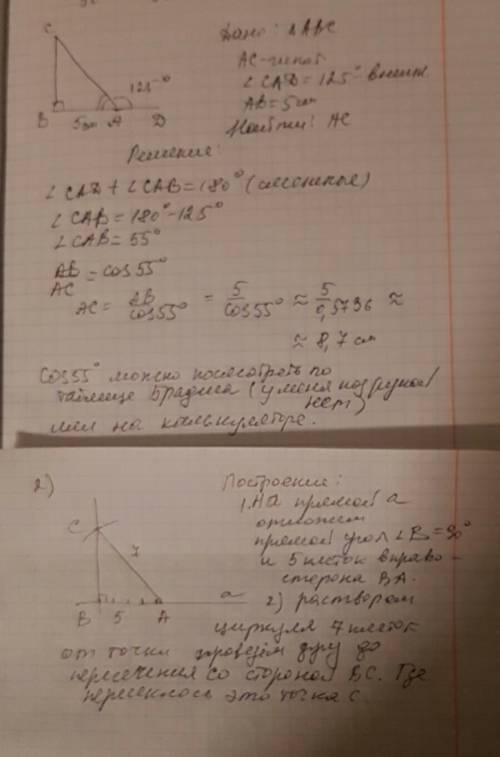 C
125°
B 5см A D
Дано: ΔABC
AC-гипот.
∠CAD = 125° внешн.
AB = 5см
Найти: AC
Решение:
∠CAD + ∠CAB = 180° (смежные)
∠CAB = 180° - 125°
∠CAB = 55°
AB/AC = cos 55°
AC = AB/cos55° = 5/cos55° ≈ 5/0,5736 ≈
≈ 8,7 см
Cos 55° можно посмотреть по
таблице Брадиса (у меня под рукой
нет)
или на калькуляторе.
2)
C
7
B 5 A a
Построение:
1. На прямой a
отложим
прямой угол ∠B = 90°
и 5 клеток вправо -
сторона BA.
2) раствором
циркуля 7 клеток
от точки проведём дугу до
пересечения со стороной BC. Где
пересеклось это точка C.